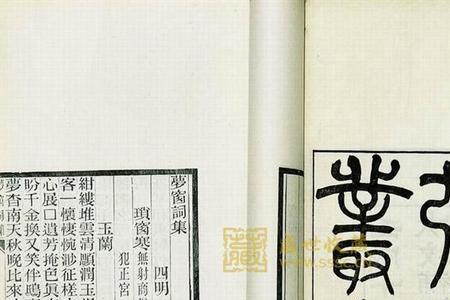 夢窗詞集
四明
瑣窗寒 無射商
犯正宮
玉蘭
紺縷堆雲清顋潤玉
客一懷悽惋渺征槎
心展□遺芳掩色真
盼千金換又笑伴鴟
夢杳南天秋晚比來
叢
盛世收藏